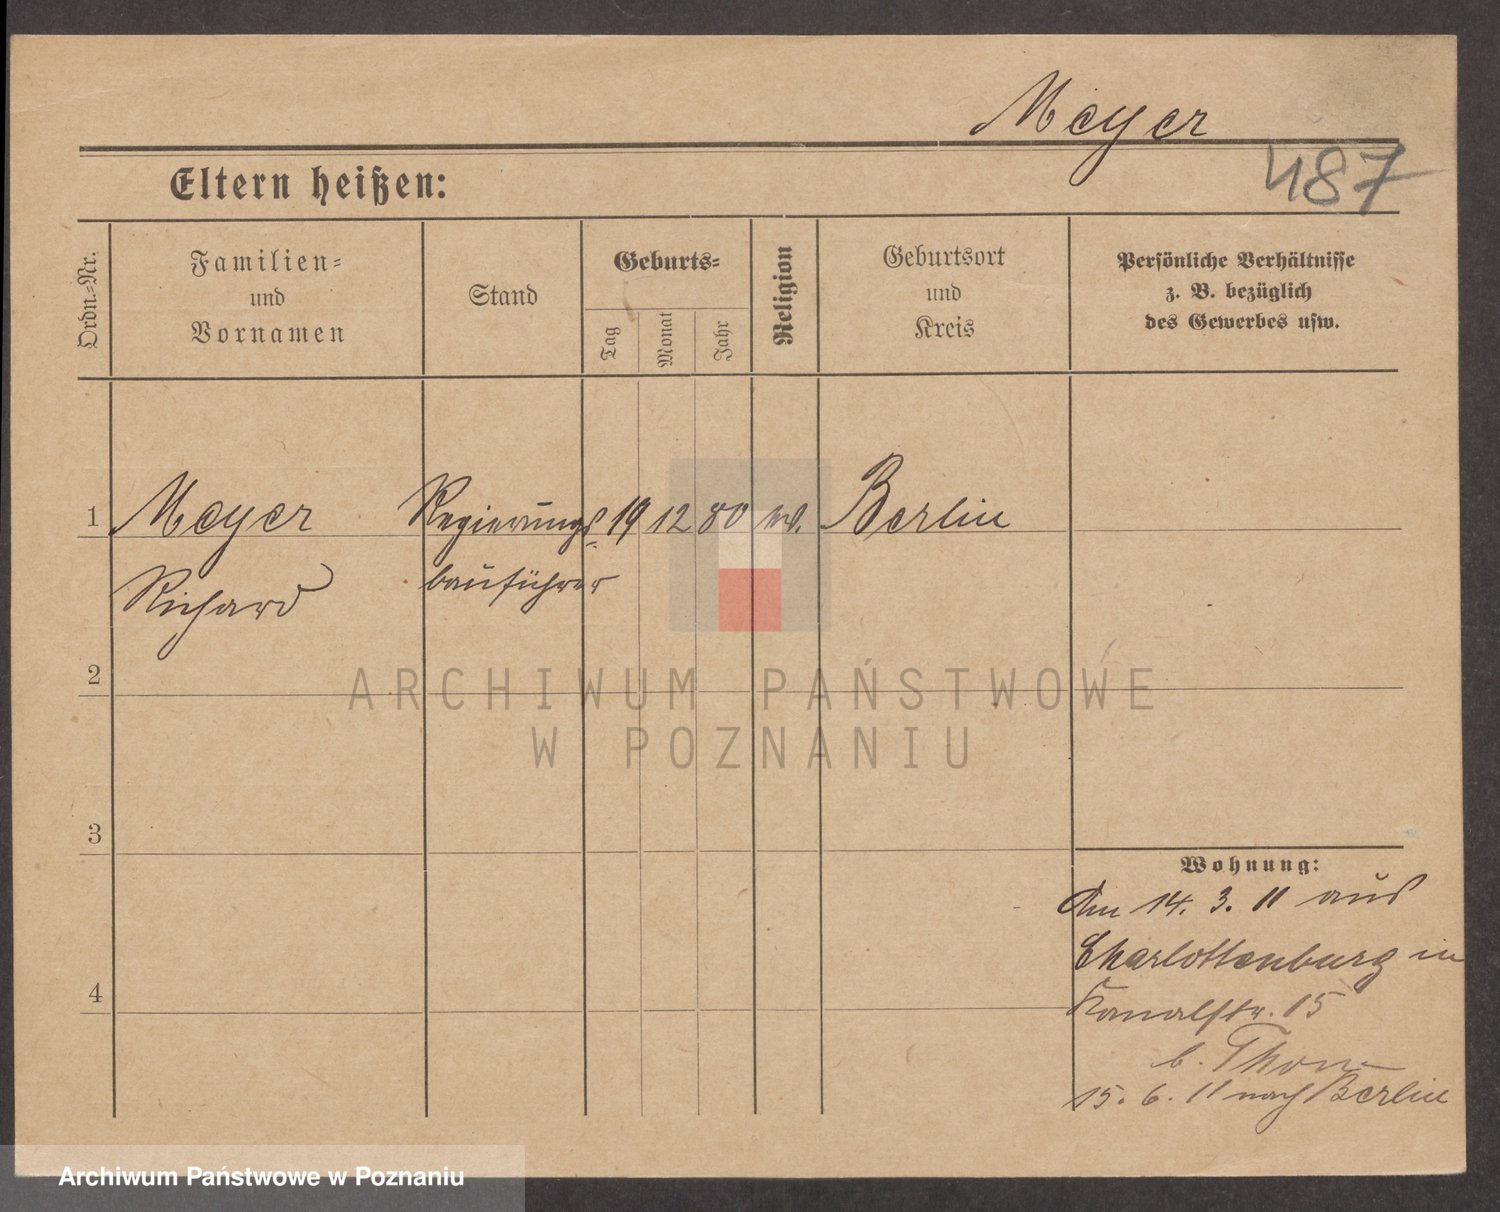 Meyer
487
Eltern heißen:
Ordn.-Nr.
Familien-
und
Vornamen
Stand
Geburts-
Tag
Monat
Jahr
Religion
Geburtsort
und
Kreis
Persönliche Verhältnisse
z. B. bezüglich
des Gewerbes usw.
1 Meyer Regierungs- 19 12 80 Berlin
Richard bauführer
2
ARCHIWUM PAŃSTWOWE
W POZNANIU
3
Wohnung:
Am 14. 3. 11 aus
Charlottenburg in
4
Kanalstr. 15
b. Thon
15. 6. 11 nach Berlin
Archiwum Państwowe w Poznaniu